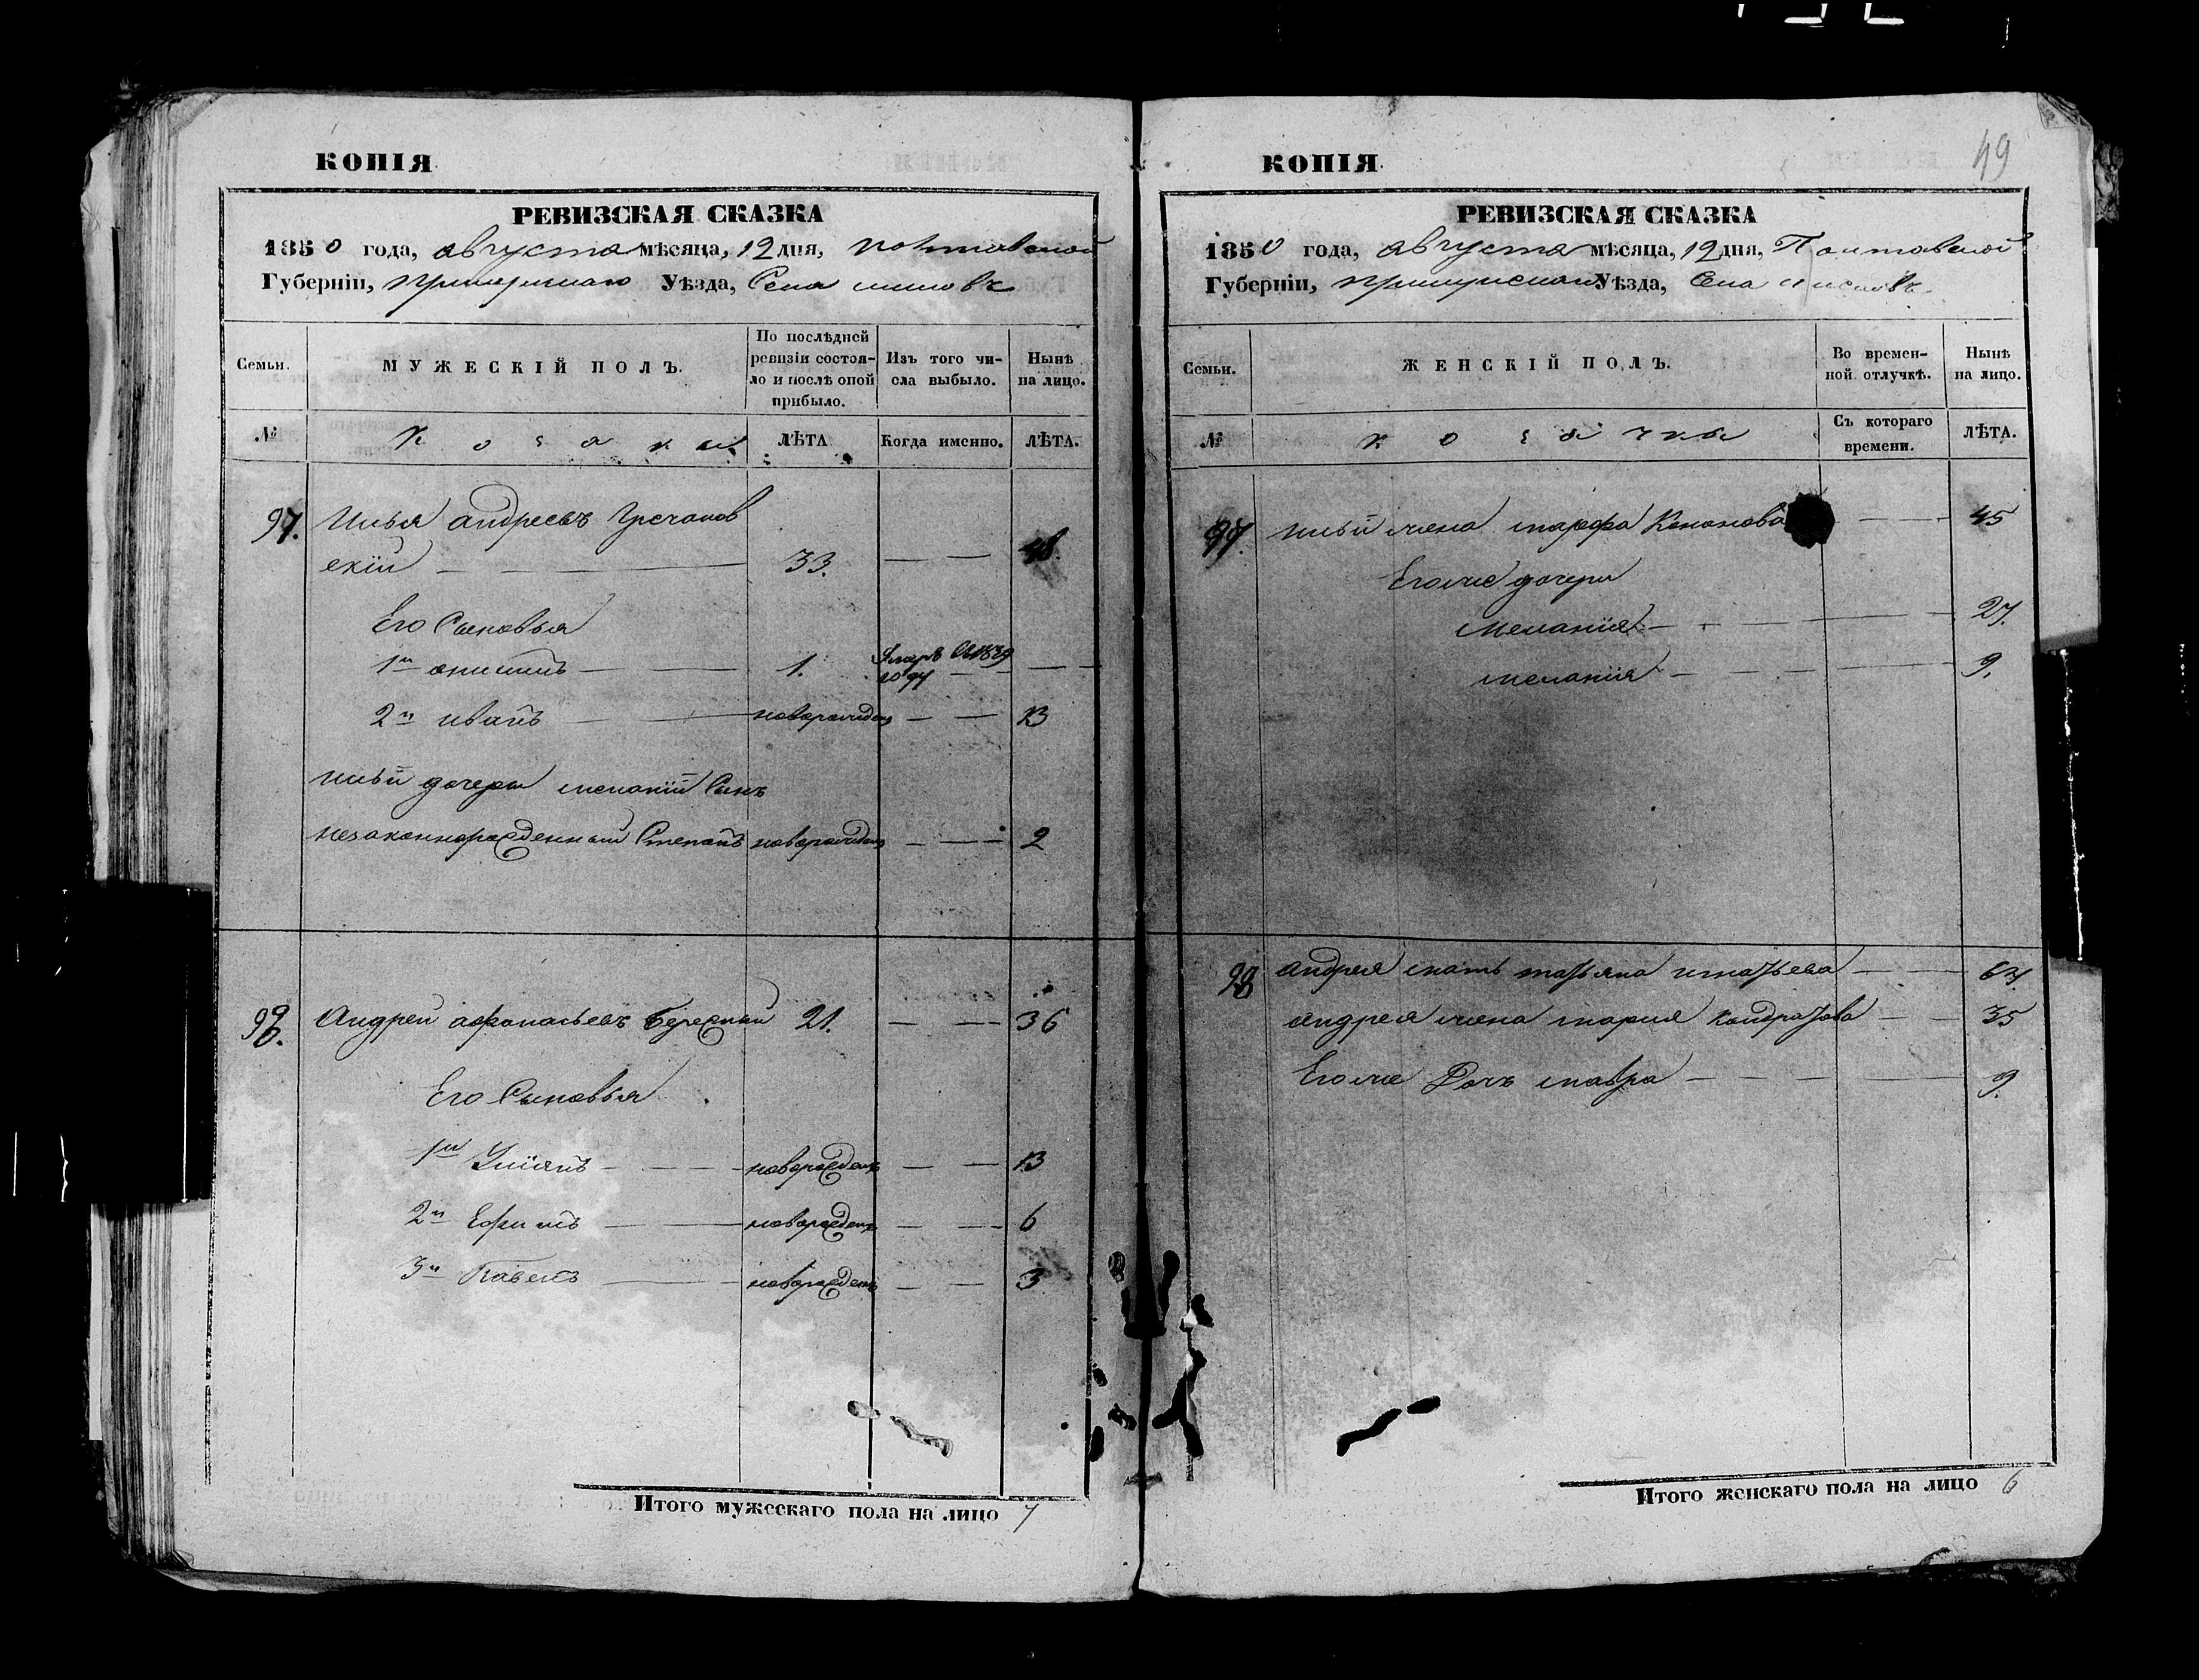 КОПІЯ.
РЕВИЗСКАЯ СКАЗКА
1850 года, августа мѣсяца, 12 дня, Полтавской
Губерніи, Прилуцкаго Уѣзда, Села
Семьи.
МУЖЕСКІЙ ПОЛЪ.
По послѣдней ревизіи состоя-
ло и послѣ оной прибыло.
Изъ того чи-
сла выбыло.
Нынѣ
на лицо.
№
Козаки
ЛѢТА
Когда именно.
ЛѢТА.
97. Илья Андреевъ Гречанов
скій — 33. — 48.
Его Сыновья
1й Онисимъ — 1. Умеръ въ 1839
году —
2й Иванъ — новорожденъ — 13
Ильи дочери Меланіи Сынъ
незаконнорожденный Степанъ новорожденъ — 2
98. Андрей Афонасьевъ 21. — 36
Его Сыновья
1й — новорожденъ — 13
2й Ефимъ — новорожденъ — 6
3й Павелъ — новорожденъ — 3
Итого мужескаго пола на лицо 7
49
КОПІЯ.
РЕВИЗСКАЯ СКАЗКА
1850 года, августа мѣсяца, 12 дня, Полтавской
Губерніи, Прилуцкаго Уѣзда, Села
Семьи.
ЖЕНСКІЙ ПОЛЪ.
Во времен-
ной отлучкѣ.
Нынѣ
на лицо.
№
Козачки
Съ котораго
времени.
ЛѢТА.
97. Ильи жена Марфа Кононова — 45
Егоже дочери
Меланія — 27.
Меланія — 9.
98 Андрея мать Татьяна Игнатьева —
Андрея жена Мария Кондратова — 35
Егоже Дочь Мавра — 9.
Итого женскаго пола на лицо 6